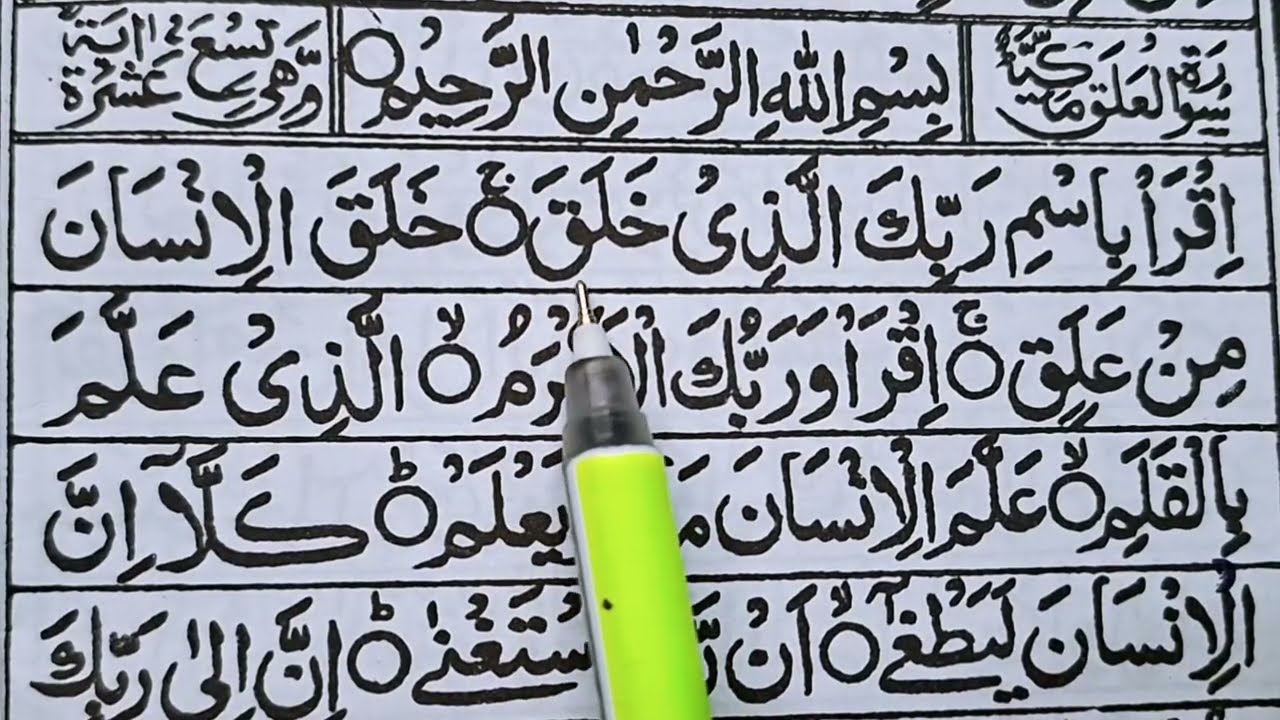 سورة العلق مكية بِسْمِ اللهِ الرَّحْمٰنِ الرَّحِيْمِ وَّهِىَ تِسْعَ عَشَرَةَ اٰيَةً
اِقْرَاْ بِاسْمِ رَبِّكَ الَّذِىْ خَلَقَ ۚ خَلَقَ الْاِنْسَانَ
مِنْ عَلَقٍ ۚ اِقْرَاْ وَرَبُّكَ الْاَكْرَمُ ۙ الَّذِىْ عَلَّمَ
بِالْقَلَمِ ۙ عَلَّمَ الْاِنْسَانَ يَعْلَمْ ؕ كَلَّآ اِنَّ
الْاِنْسَانَ لَيَطْغٰٓى ۙ اَنْ اسْتَغْنٰى ؕ اِنَّ اِلٰى رَبِّكَ